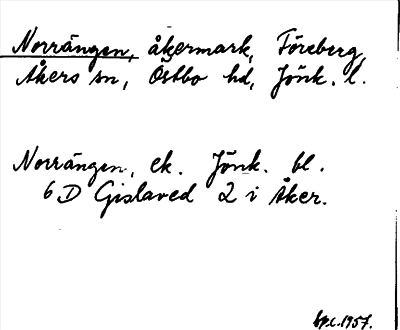 Norrängen, åkermark, Föreberg,
Åkers sn, Östbo hd, Jönk. l.
Norrängen, ek. Jönk. bl.
6 D Gislaved 2 i Åker.
Sp.c.1957.